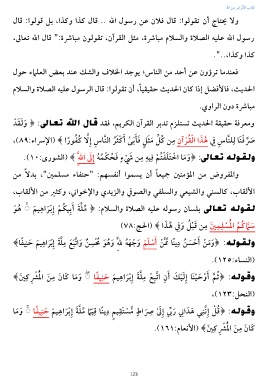 كتاب الأثر من الله
ولا يحتاج أن تقولوا: قال فلان عن رسول الله .. قال كذا وكذا، بل قولوا: قال
رسول الله عليه الصلاة والسلام مباشرة، مثل القرآن، تقولون مباشرة:" قال الله تعالى،
كذا وكذا،..".
فعندما تروؤن عن أحد من الناس؛ يوجد الخلاف والشك عند بعض العلماء حول
الحديث، فالأفضل إذا كان الحديث حقيقياً، أن تقولوا: قال الرسول عليه الصلاة والسلام
مباشرة دون الراوي.
ومعرفة حقيقة الحديث تستلزم تدبر القرآن الكريم، فقد قال الله تعالى: ﴿ وَلَقَدْ
صَرَّفْنَا لِلنَّاسِ فِي هَذَا الْقُرْآنِ مِن كُلِّ مَثَلٍ فَأَبَىٰ أَكْثَرُ النَّاسِ إِلَّا كُفُورًا ﴾ (الإسراء:٨٩)،
ولقوله تعالى: ﴿وَمَا اخْتَلَفْتُمْ فِيهِ مِن شَيْءٍ فَحُكْمُهُ إِلَى اللَّهِ ﴾ (الشورى:١٠).
والمفروض من المؤمنين جميعاً أن يسموا أنفسهم: "حنفاء مسلمين"، بدلاً من
الألقاب، كالسني والشيعي والسلفي والصوفي والزيدي والإخواني، وكثير من الألقاب،
لقوله تعالى بلسان رسوله عليه الصلاة والسلام: ﴿ مِّلَّةَ أَبِيكُمْ إِبْرَاهِيمَ ۚ هُوَ
سَمَّاكُمُ الْمُسْلِمِينَ مِن قَبْلُ وَفِي هَٰذَا ﴾ (الحج:٧٨)
ولقوله: ﴿وَمَنْ أَحْسَنُ دِينًا مِّمَّنْ أَسْلَمَ وَجْهَهُ لِلَّهِ وَهُوَ مُحْسِنٌ وَاتَّبَعَ مِلَّةَ إِبْرَاهِيمَ حَنِيفًا﴾
(النساء:١٢٥).
وقوله: ﴿ثُمَّ أَوْحَيْنَا إِلَيْكَ أَنِ اتَّبِعْ مِلَّةَ إِبْرَاهِيمَ حَنِيفًا ۖ وَمَا كَانَ مِنَ الْمُشْرِكِينَ﴾
(النحل:١٢٣)،
وقوله: ﴿قُلْ إِنَّنِي هَدَانِي رَبِّي إِلَىٰ صِرَاطٍ مُّسْتَقِيمٍ دِينًا قِيَمًا مِّلَّةَ إِبْرَاهِيمَ حَنِيفًا ۚ وَمَا
كَانَ مِنَ الْمُشْرِكِينَ﴾ (الأنعام:١٦١).